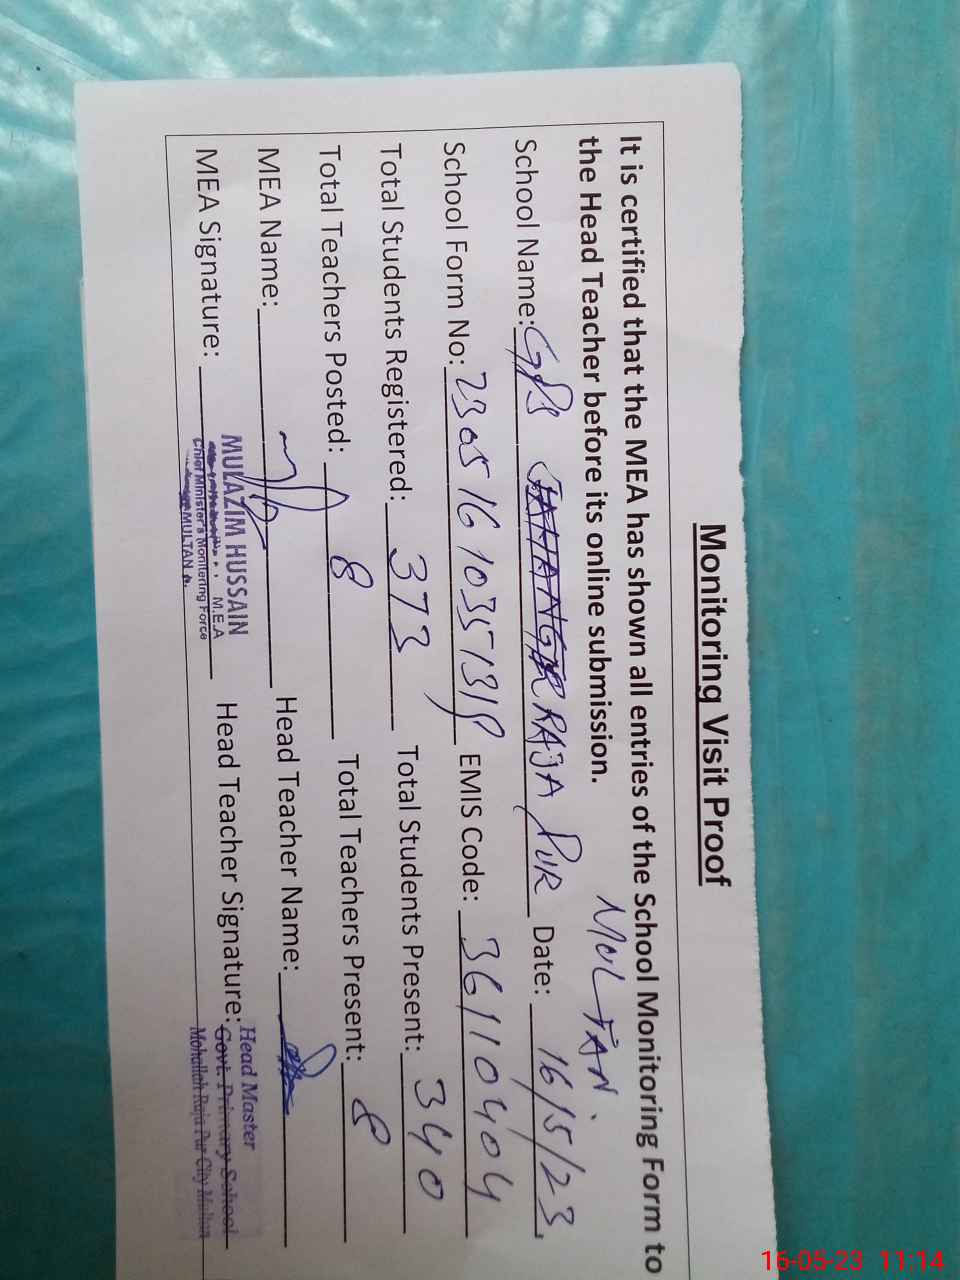 Monitoring Visit Proof
It is certified that the MEA has shown all entries of the School Monitoring Form to
the Head Teacher before its online submission.
MULTAN.
School Name: GPS RAJA PUR Date: 16/5/23.
School Form No: EMIS Code: 36110404
Total Students Registered: 373 Total Students Present: 340
Total Teachers Posted: 8 Total Teachers Present: 8
MEA Name: Head Teacher Name:
MEA Signature: Head Teacher Signature:
MULAZIM HUSSAIN
M.E.A
Chief Minister's Monitoring Force
MULTAN
Head Master
Govt. Primary School
Mohallah Raja Pur City Multan
16-05-23 11:14